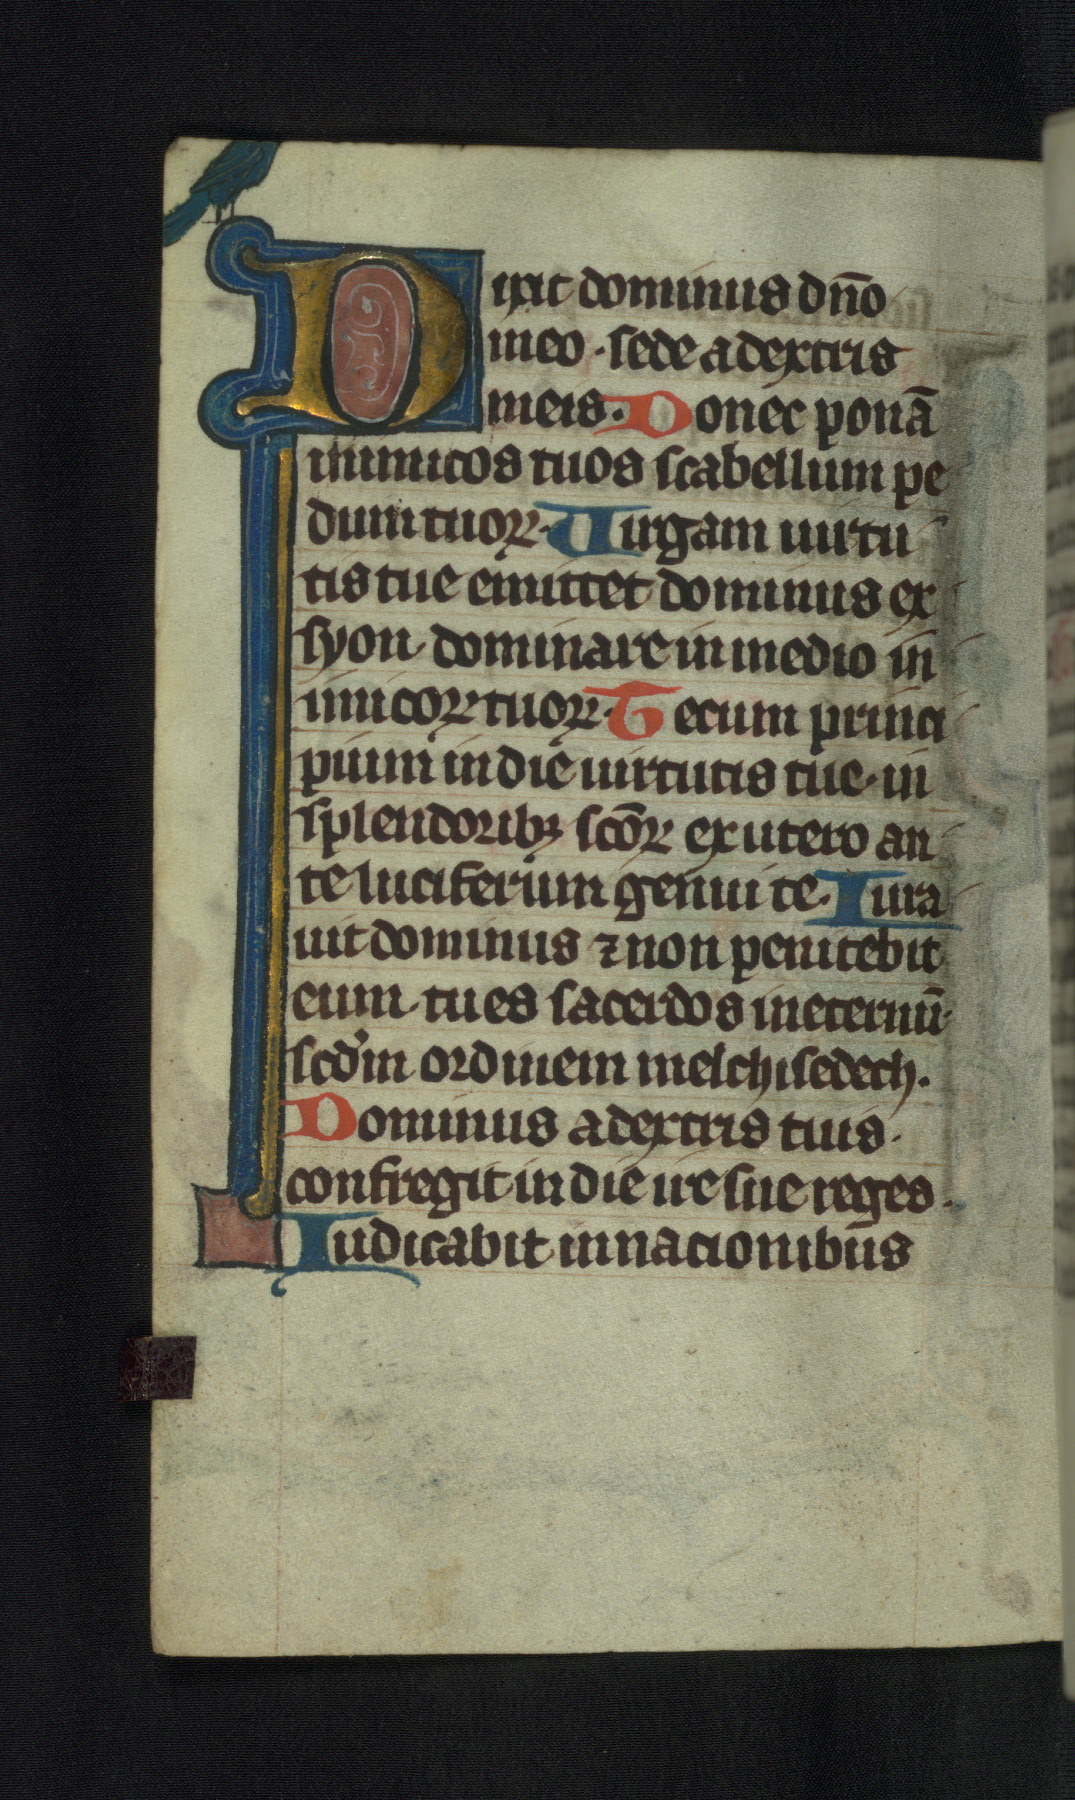 Dixit dominus dn̄o
meo · sede a dextris
meis. Donec ponā
inimicos tuos scabellum pe
dum tuoꝝ. Uirgam uirtu
tis tue emittet dominus ex
syon · dominare in medio in
imicoꝝ tuoꝝ. Tecum princi
pium in die uirtutis tue · in
splendoribꝫ sc̄oꝝ ex utero an
te luciferum genui te. Iura
uit dominus ⁊ non penitebit
eum · tu es sacerdos in eternū
scd'm ordinem melchisedech.
Dominus a dextris tuis ·
confregit in die ire sue reges.
Iudicabit in nacionibus